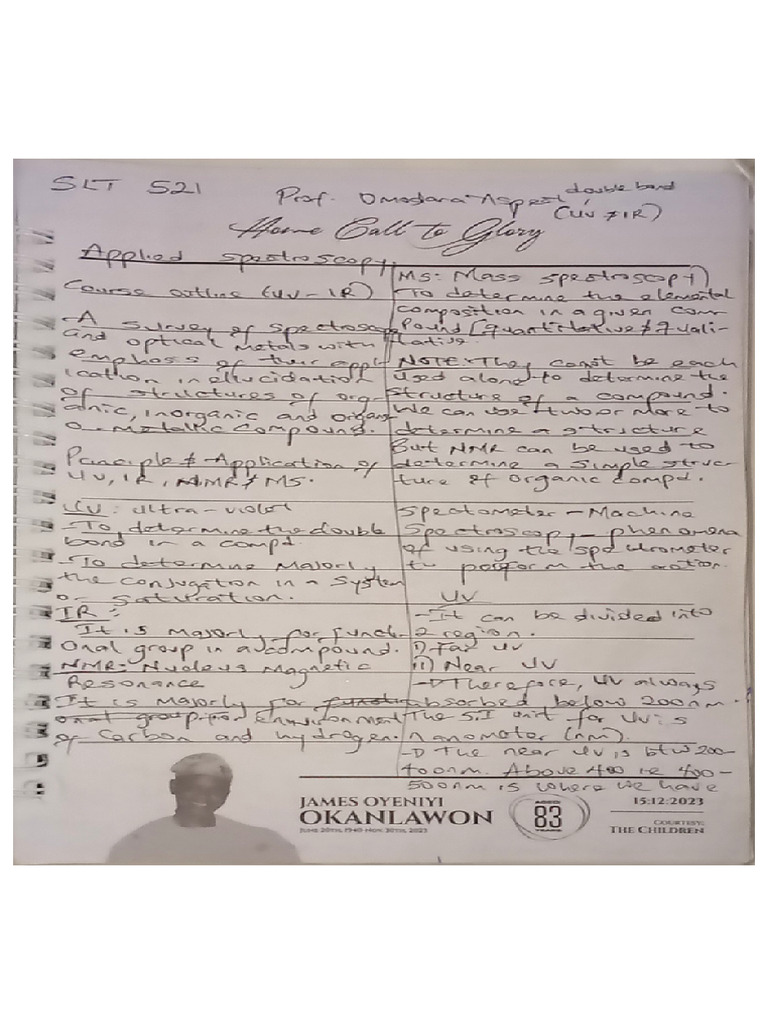 SLT 521
Prof. Omodara Aspect double bond
(UV & IR)
Home Call to Glory
Applied spectroscopy
Course outline (UV - IR)
- A survey of spectroscopy
and optical metals with
emphass of their appl-
ication in ellucidation
of structures of org-
anic, inorganic and organ-
o-metallic compound.
Principle & Application of
UV, IR, NMR & MS.
UV: ultra-violet
- To determine the double
bond in a compd.
- To determine majorly
the conjugation in a system
or saturation.
IR:
It is majorly for funct-
onal group in a compound.
NMR: Nucleus Magnetic
Resonance
It is majorly for functi
onal group for Environment
of Carbon and hydrogen.
MS: Mass spectroscopy)
To determine the elemental
composition in a given com-
pound [quantitative & quali-
tative.
NOTE: They can't be each
used alone to determine the
structure of a compound.
We can use two or more to
determine a structure
But NMR can be used to
determine a simple struc-
ture of organic compd.
Spectometer - Machine
Spectroscopy - phenomena
of using the spectrometer
to perform the action.
UV
- It can be divided into
2 region.
i) Far UV
ii) Near UV
- Therefore, UV always
absorbed below 200nm.
The S.I unit for UV is
nanometer (nm).
- The near UV is btw 200-
400nm. Above 400 ie 400-
500nm is where we have
JAMES OYENIYI
OKANLAWON
JUNE 20TH, 1940-NOV. 30TH, 2023
AGED
83
YEARS
15:12:2023
COURTESY:
THE CHILDREN